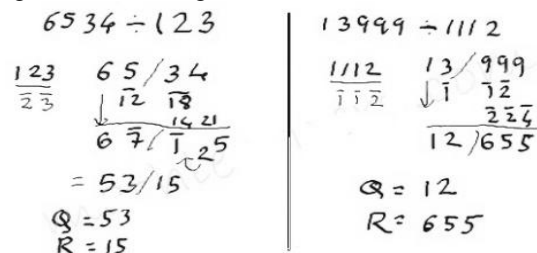 6534 ÷ 123
123 65/34
2̅3̅ ↓ 1̅2̅ 1̅8̅
14 21
6 7̅/1̅ 25
= 53/15
Q = 53
R = 15
13999 ÷ 1112
1112 13/999
1̅1̅2̅ ↓ 1̅ 1̅2̅
2̅2̅4̅
12/655
Q = 12
R = 655